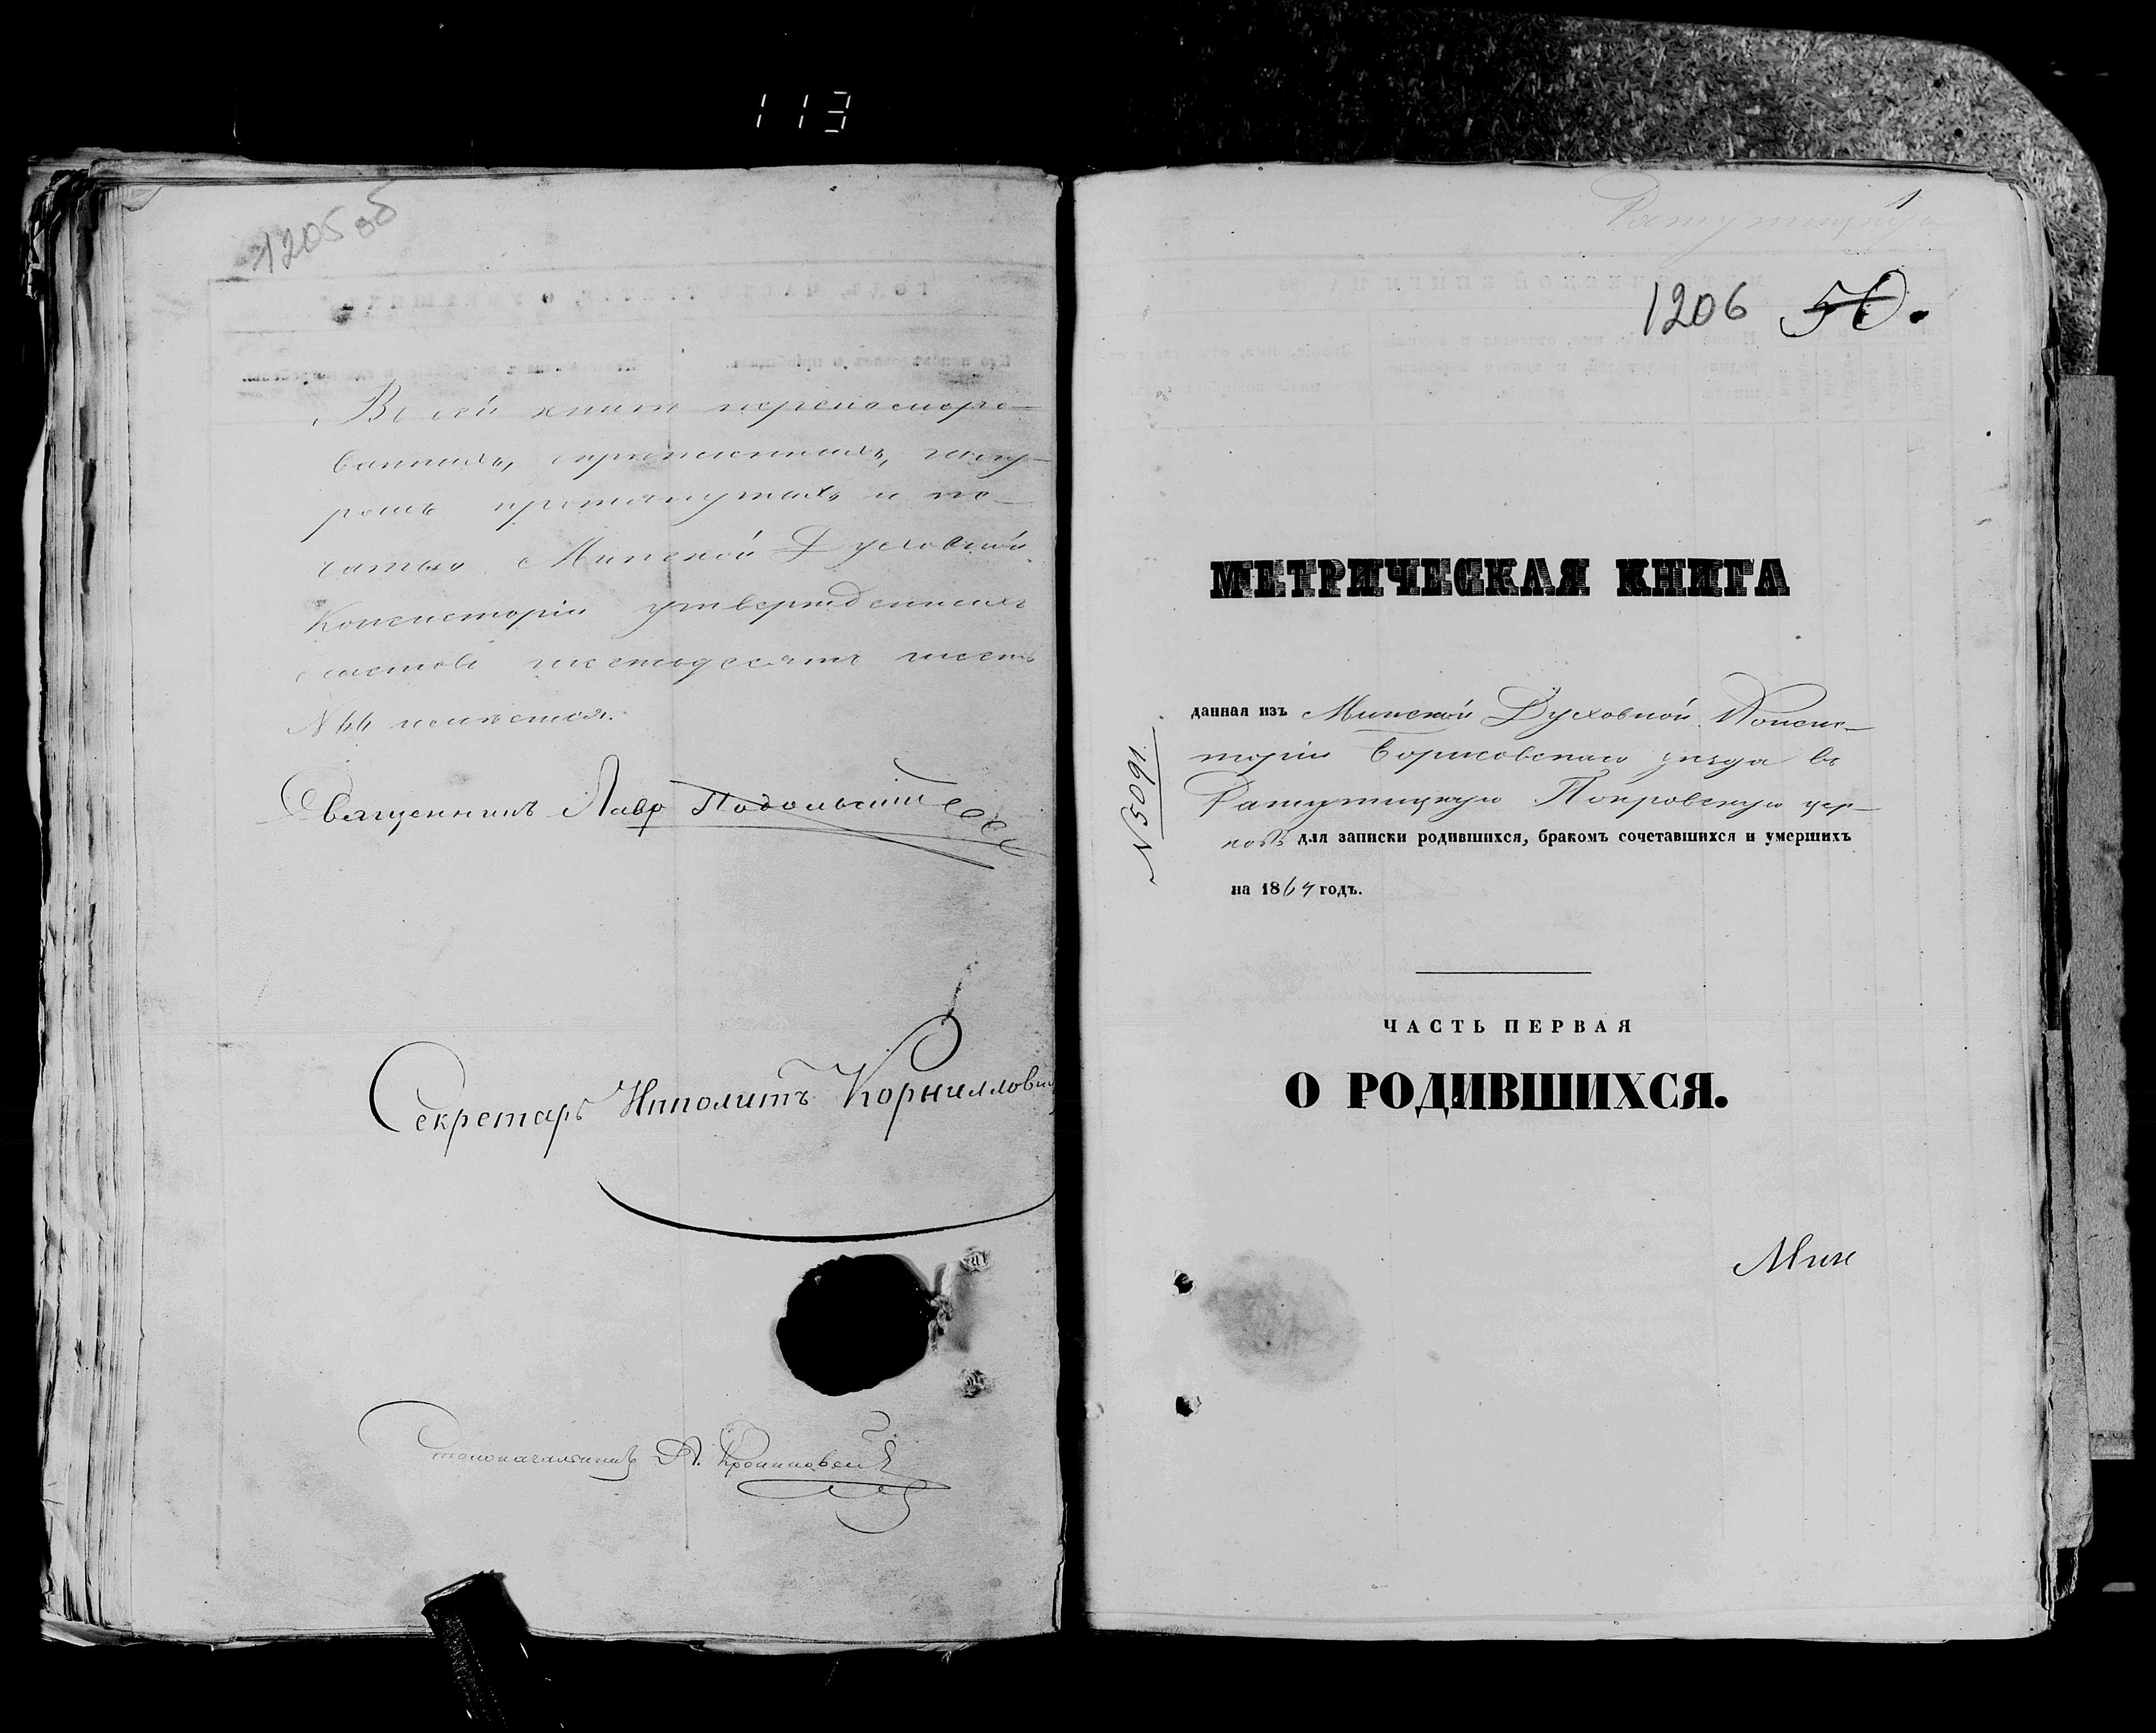 113
1205 об
Въ сей книгѣ перенумеро-
ванныхъ, скрѣпленныхъ, шну-
ромъ протянутыхъ и пе-
чатью Минской Духовной
Консисторіи утвержденныхъ
листовъ шестьдесятъ шесть
№ 66 имѣется.
Священникъ Лавр Подольский
Секретарь Ипполитъ Корниллович
Столоначальникъ А.
1206 50.
МЕТРИЧЕСКАЯ КНИГА
данная изъ Минской Духовной Конси-
сторіи Борисовскаго уѣзда въ
Ратутицкую Покровскую цер-
ковь для записки родившихся, бракомъ сочетавшихся и умершихъ
на 1864 годъ.
№ 5091
ЧАСТЬ ПЕРВАЯ
О РОДИВШИХСЯ.
Мин